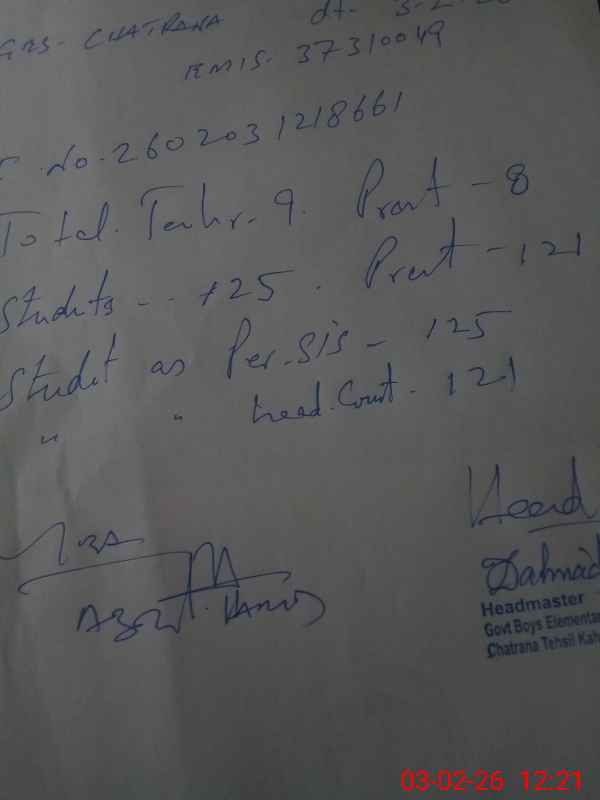 GBS- CHATRANA dt. 3-2-26
EMIS- 37310049
No. 2602031218661
Total. Teahr- 9. Prent - 8
Students - - 125. Prent - 121
Studet as Per-SIS - 125
" " head.Count - 121
Head
Headmaster
Govt Boys Elementar
Chatrana Tehsil Kah
03-02-26 12:21